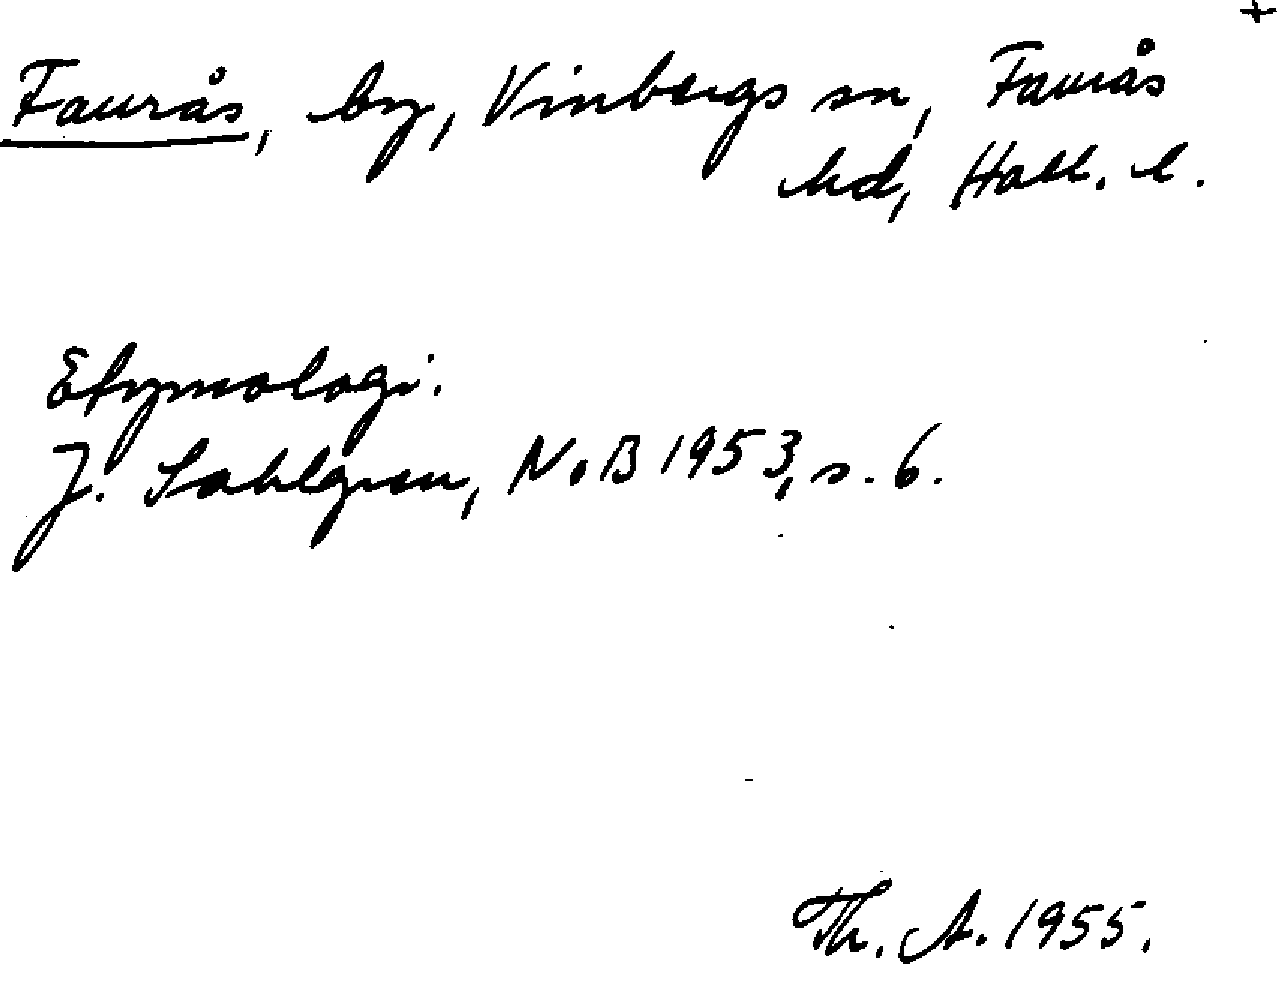 +
Faurås, by, Vinbergs sn, Faurås
hd, Hall. l.
Etymologi.
J. Sahlgren, NoB 1953, s. 6.
Th. A. 1955.